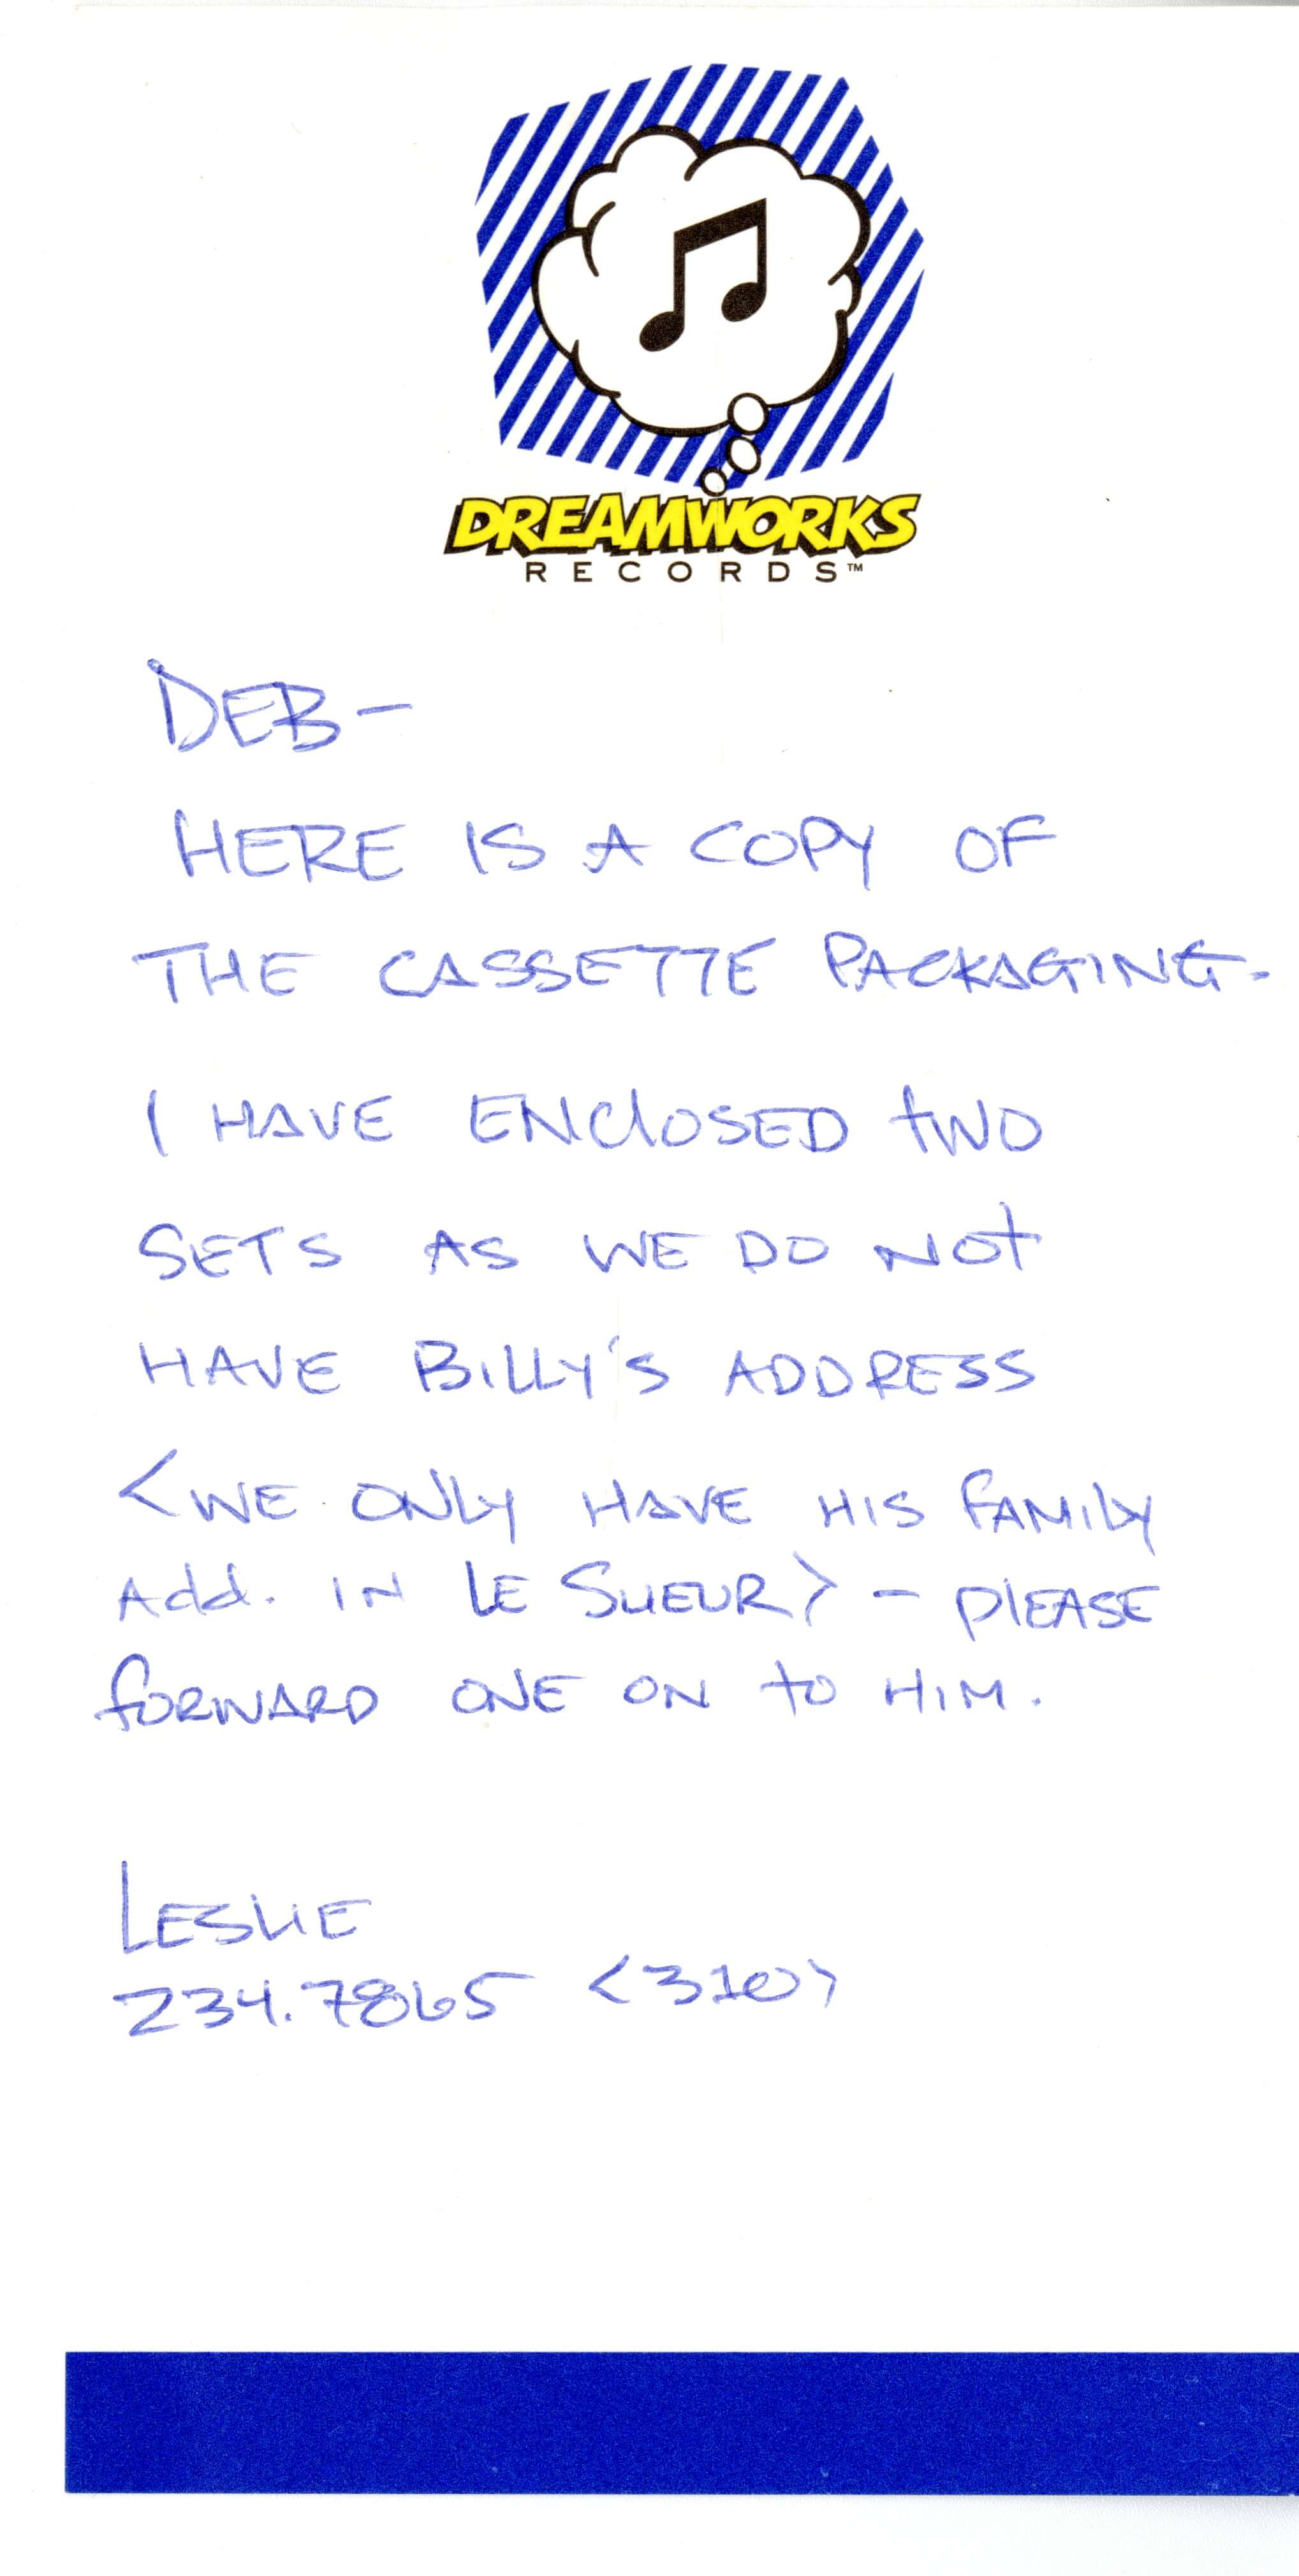 DREAMWORKS
RECORDS™
DEB-
HERE IS A COPY OF
THE CASSETTE PACKAGING.
I HAVE ENClOSED tWO
SETS AS WE DO NOt
HAVE BILLY'S ADDRESS
<WE ONLY HAVE HIS FAMILY
Add. IN LE SUEUR> - PlEASE
FORWARD ONE ON tO HIM.
LESLIE
234.7865 <310>